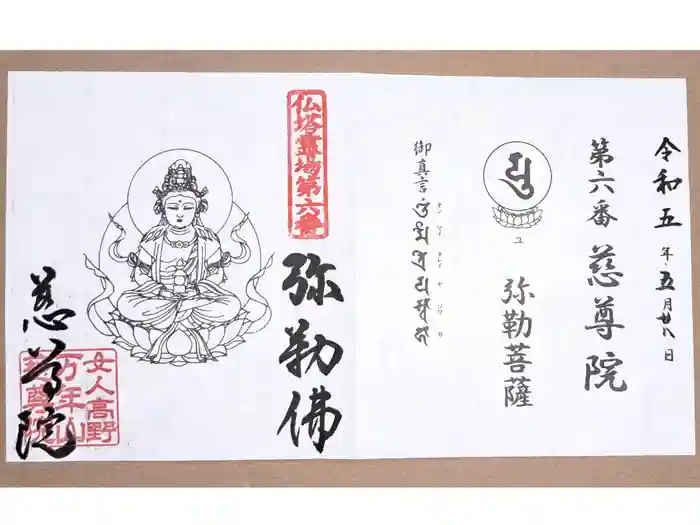 令和五年五月廿八日
第六番 慈尊院
ユ
弥勒菩薩
御真言
オン マイ タレイ ヤ ソワ カ
仏塔霊場第六番
弥勒佛
女人高野
万年山
慈尊院
慈尊院